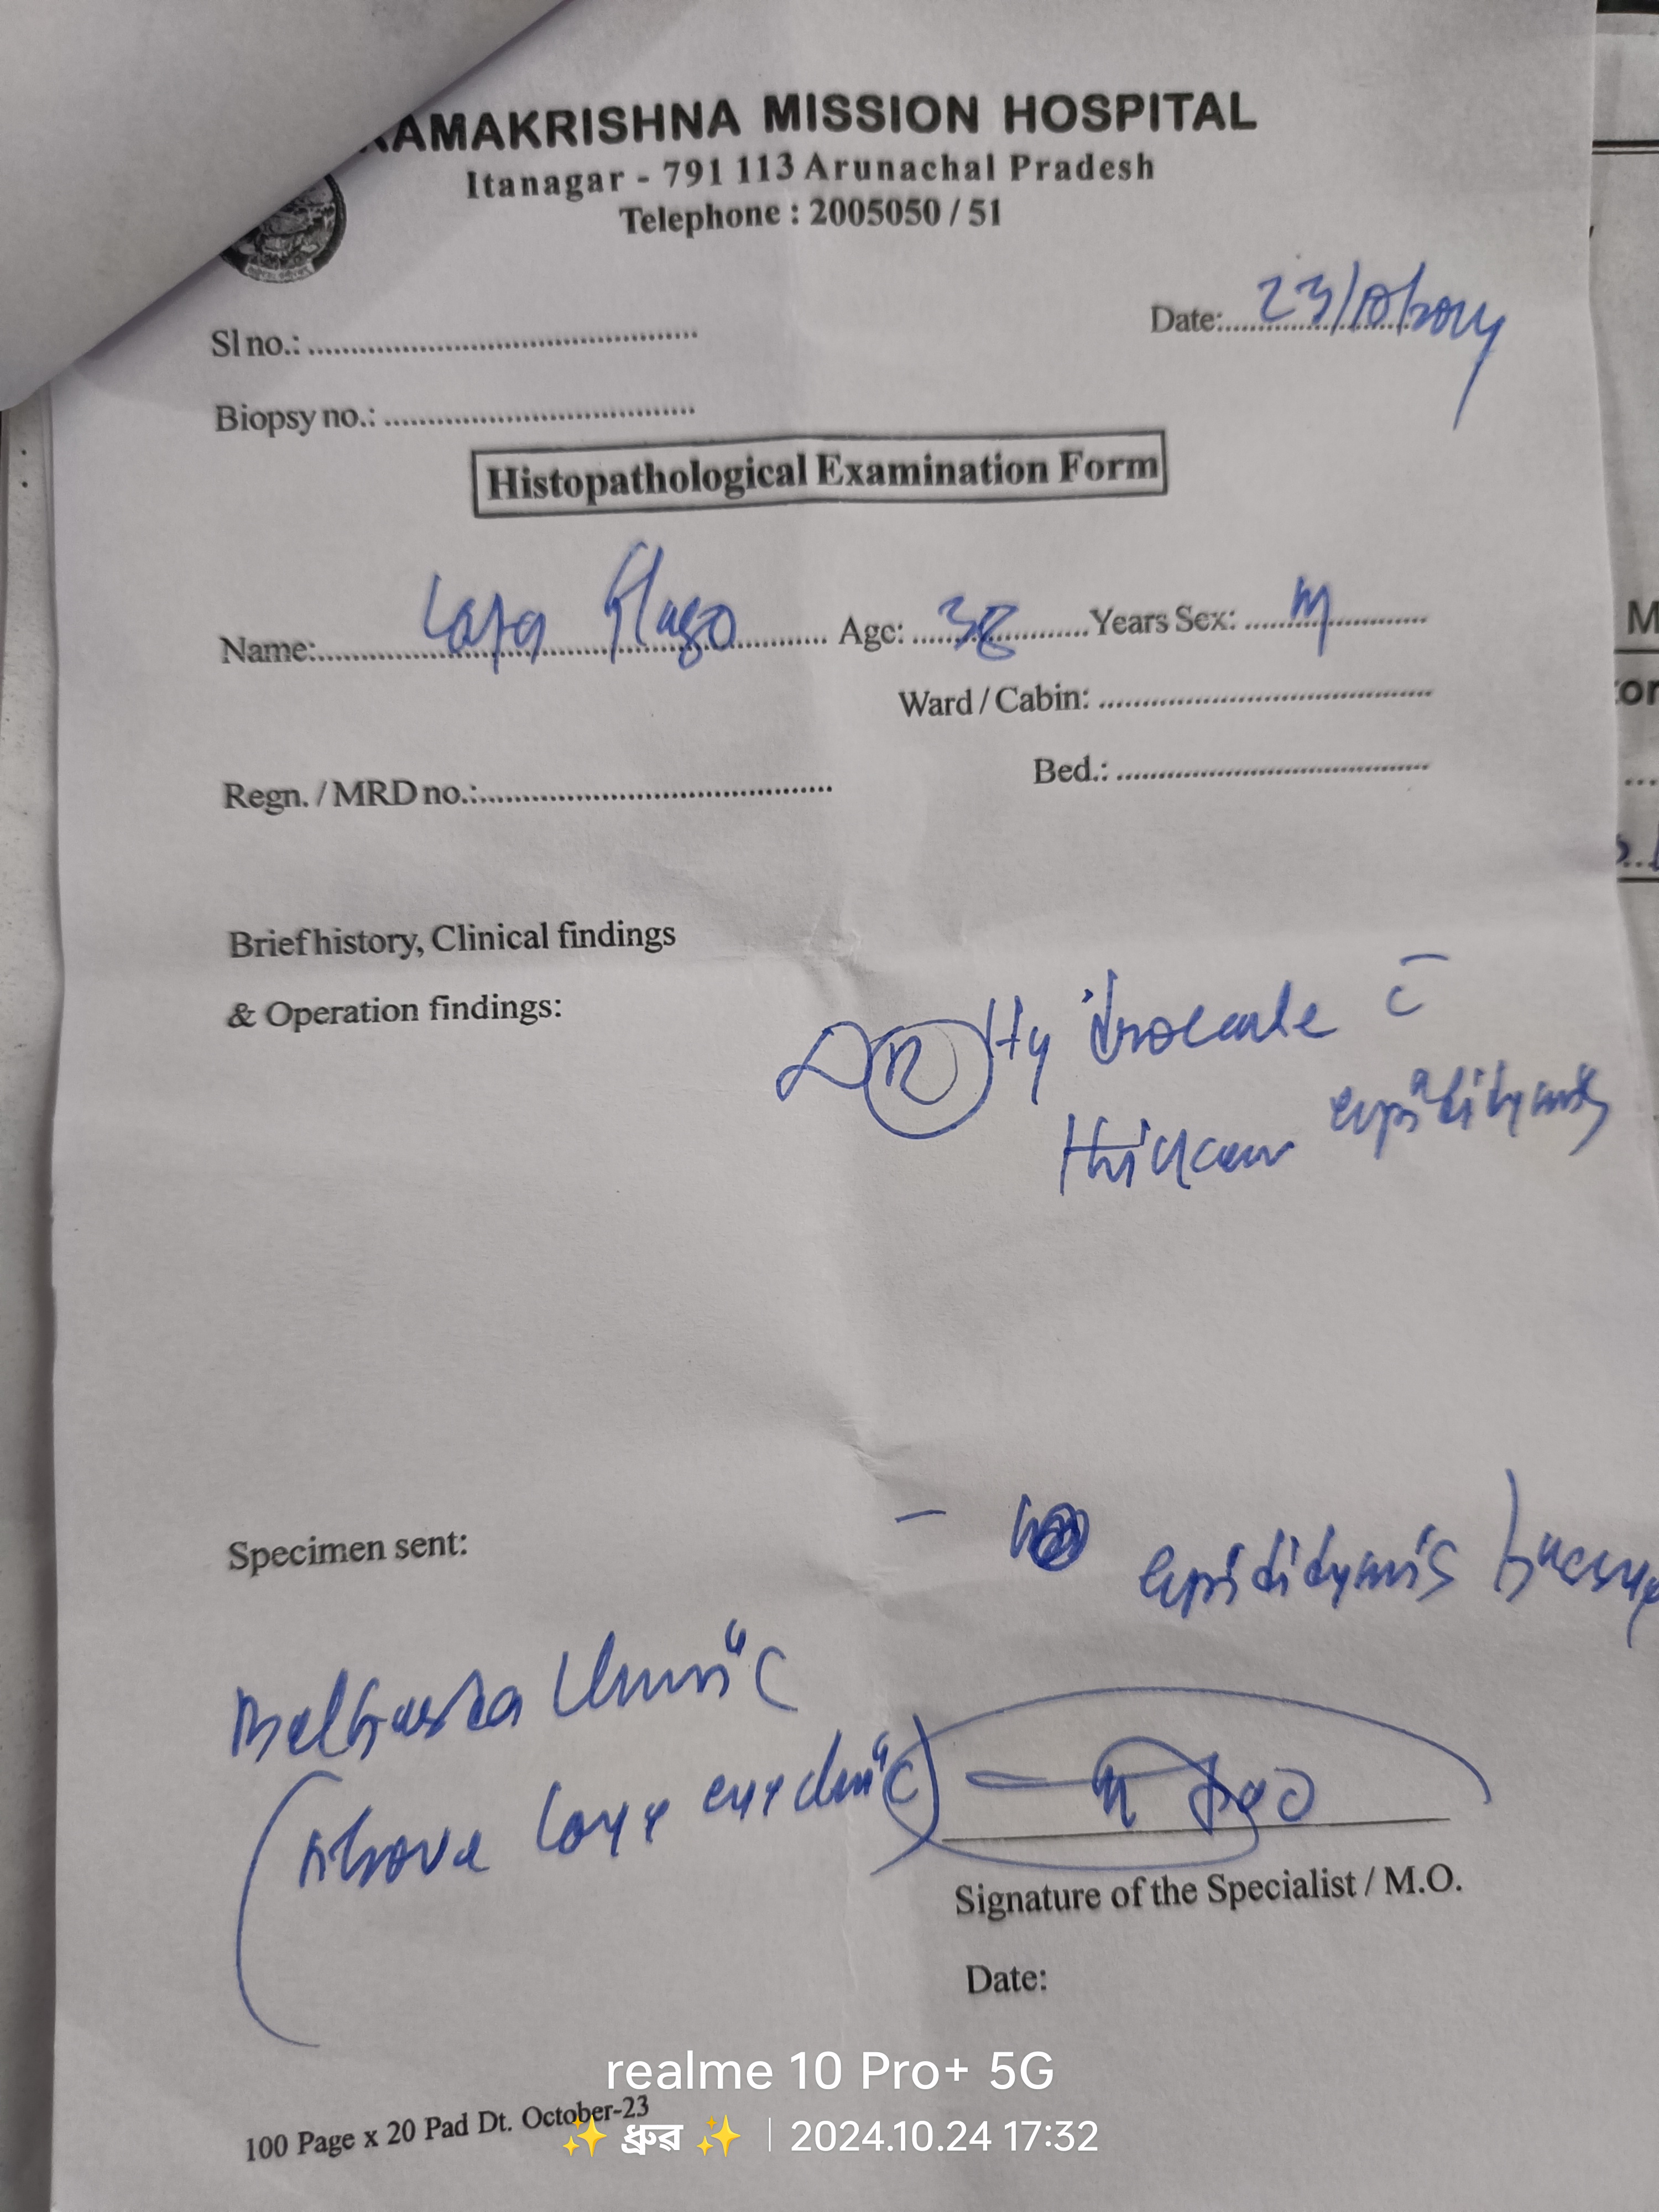 RAMAKRISHNA MISSION HOSPITAL
Itanagar - 791 113 Arunachal Pradesh
Telephone : 2005050 / 51
Sl no.:
Date: 23/10/2024
Biopsy no.:
Histopathological Examination Form
Name: Age: 38 Years Sex: M
Ward / Cabin:
Bed.:
Regn. / MRD no.:
Brief history, Clinical findings
& Operation findings:
Hydrocele c̄
epididymis
Specimen sent: - epididymis
Clinic
(Above
Signature of the Specialist / M.O.
Date:
100 Page x 20 Pad Dt. October-23
realme 10 Pro+ 5G
✨ ধ্রুৱ ✨ | 2024.10.24 17:32